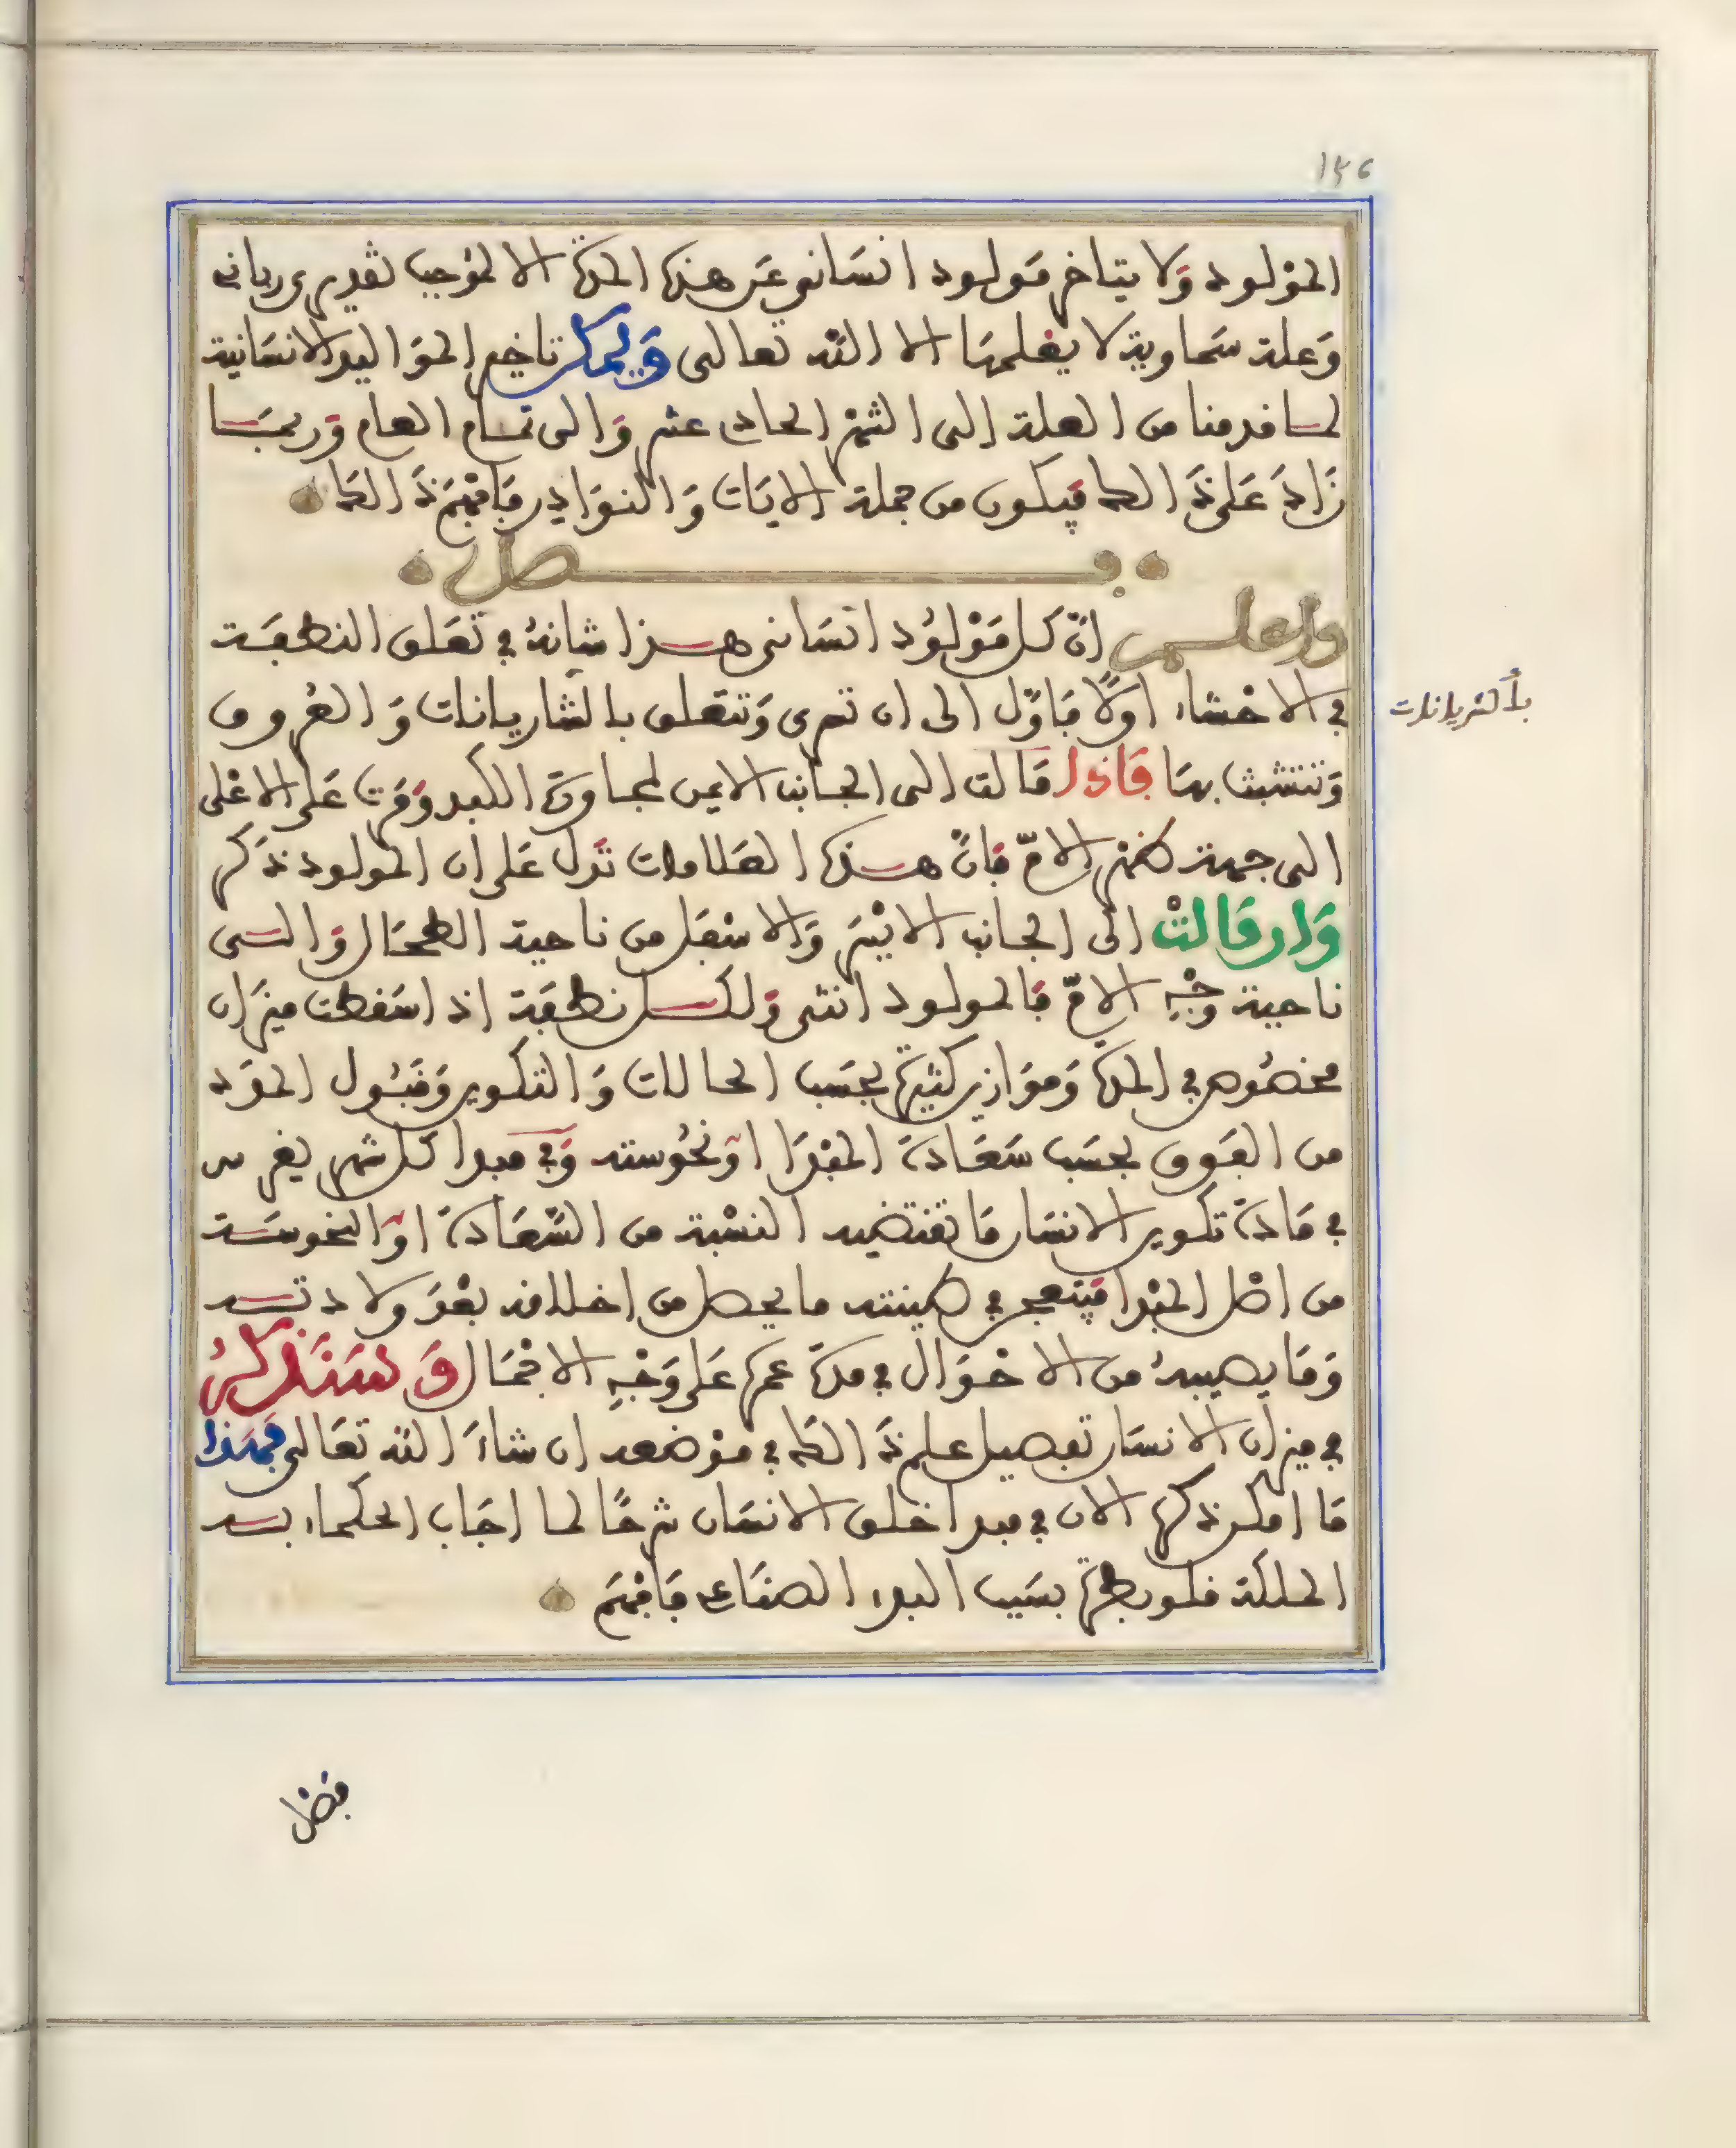 ١٣٦
المَوْلود وَلا يتاخر مَولود انسَانى عَن هذه المدة الا لموجب تقديرى ربانى
وَعلة سَماوية لا يعلمهَا الا الله تعالى وَيمكن تاخير الموَاليد الانسَانية
لما قدمنا من العلة إلى الشهر الحادى عشر وَالى تمام العام وَربمَا
زَادَ عَلى ذَالك فيكون من جملة الايَات وَالنوَادِر فَافْهَمْ ذَالكَ
فصل
واعلم انّ كل مَوْلوُد انسَانى هذا شانهُ في تعَلق النطفَة
في الاحْشاء اولًا فَاوّل الى ان تجرى وَتتعَلق بالشاريانات وَالعُروق
وَتتشبث بهَا فَاذا مَالت الى الجانب الايمن لمجاورة الكبد وَمَرت عَلى الاعْلى
الى جهة ظهر الامّ فَانّ هذه العَلامات تدل عَلى ان المولود ذَكر
وَان مَالتْ الى الجانب الايْسَر وَالاسْفَل من ناحية الطحَال وَالى
ناحية وَجْهِ الامّ فَالمولود انثى وَلكل نطفَة اذ اسَقطت ميزَان
مخصُوص في المدة وَموَازين كثيرة بحسَب الحالات وَالتكوين وَقبُول الموَد
من القوى بحسَب سَعَادة المبْدَا اوْ نحُوسته وَفي مبدا كل شهر يغرس
في مَادة تكوين الانسَان مَا تقتضيه النسْبة من السَّعَادة اوْ النحوسَة
من اصْل المبْدا فينعجن في طينته ما يحصل من اخلاقه بعْدَ ولادته
وَمَا يصيبهُ من الاحْوَال في مدة عمره عَلى وَجْهِ الاجْمَال وَسَنَذكرُ
في ميزان الانسَان تفصيل علم ذَالك في موْضعه ان شاءَ الله تعَالى فهَذا
مَا امكن ذكره الان في مبدا خلق الانسَان شرحًا لما اجَاب الحكماء به
الملكة قلوبطرة بسَبب البدء الصنَاعى فَافْهَمْ
بالشريانات
فصْل